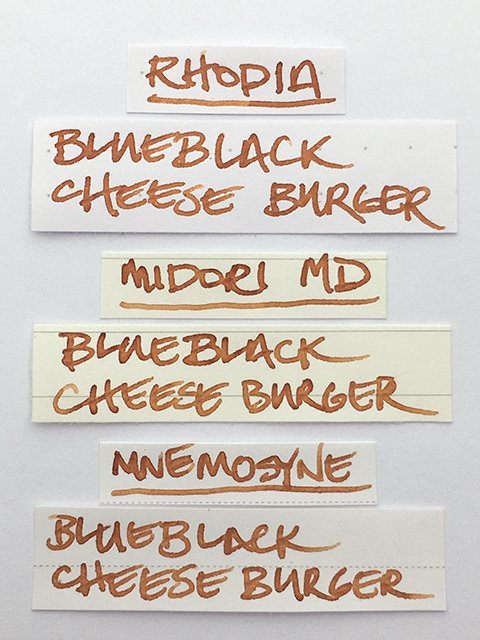 RHODIA
BLUEBLACK
CHEESE BURGER
MIDORI MD
BLUEBLACK
CHEESE BURGER
MNEMOSYNE
BLUEBLACK
CHEESE BURGER